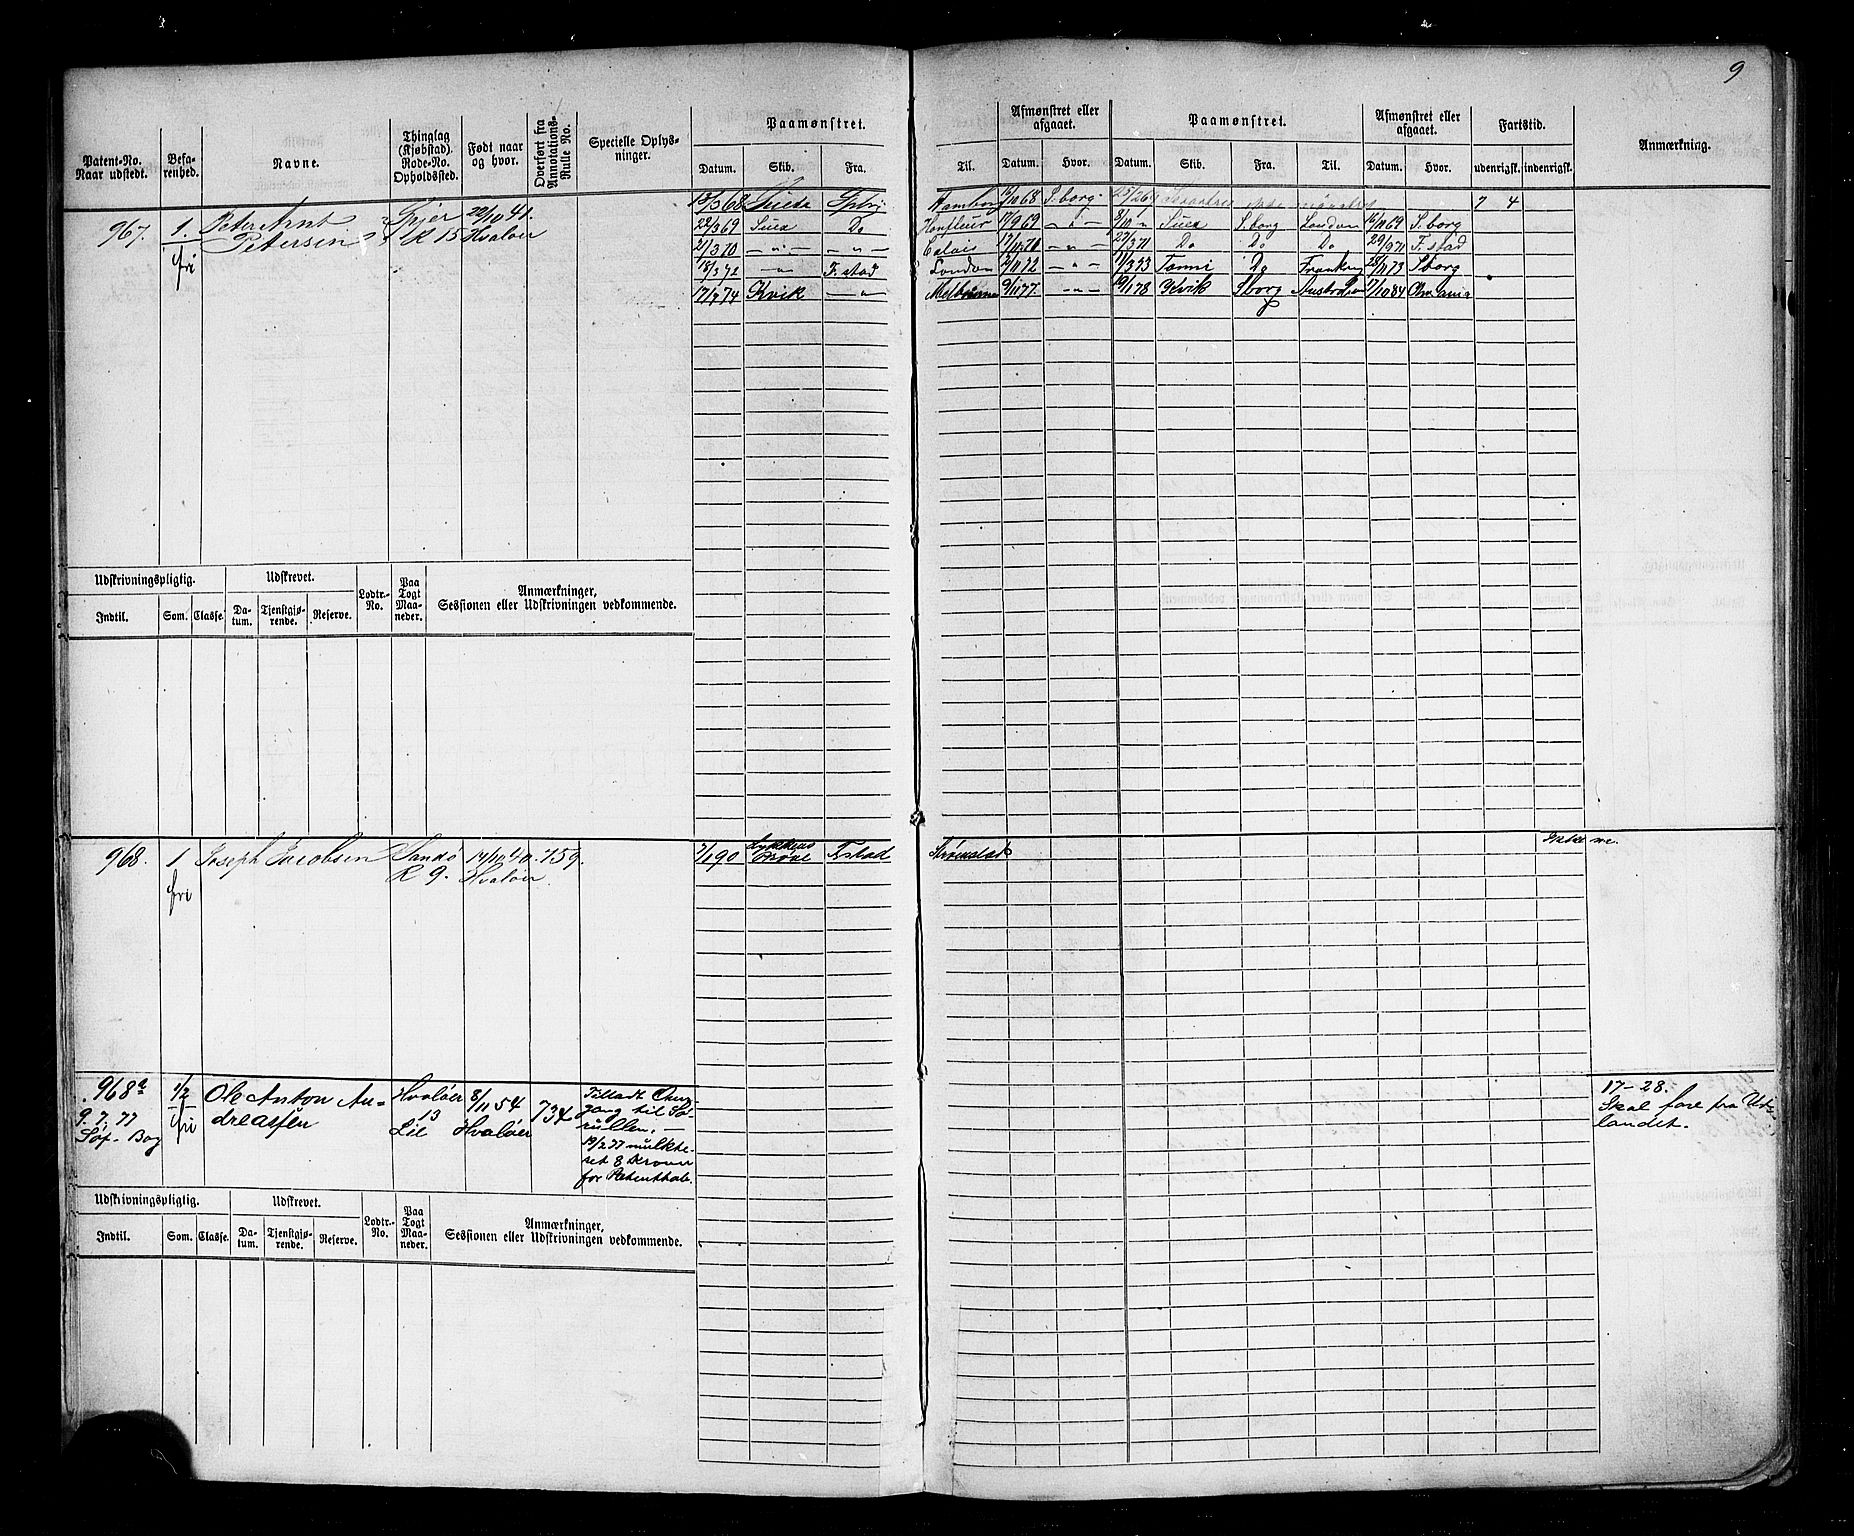 9
Patent-No. Naar udstedt.
Befarenhed.
Navne.
Thinglag (Kjøbstad). Rode-No. Opholdssted.
Født naar og hvor.
Overført fra Annotations-Rulle No.
Specielle Oplysninger.
Paamønstret.
Datum. Skib. Fra.
Til.
Afmønstret eller afgaaet.
Datum. Hvor.
Paamønstret.
Datum. Skib. Fra. Til.
Afmønstret eller afgaaet.
Datum. Hvor.
Fartstid.
udenrigsk. indenrigsk.
Anmærkning.
967. 1. Peter Arnt 29/10 41.
fri Petersen R 15 Hvaløer
13/3 68 Hamborg 68 S.borg 7 4
22/3 69 Suez Do Honfleur 17/9 69 - " - 8/10 " Suez S.borg London 16/10 69 S.borg
21/3 70 - " - - " - Calais 17/11 70 - " - 27/3 71 Do Do Do 29/9 71 F.stad
18/3 72 - " - F.stad London 72 - " - 11/3 73 Do 28/11 73 Sborg
17/7 74 Kvik - " - Melbourne 9/11 77 - " - 9/1 78 Kvik Sborg 7/10 84
Udskrivningspligtig. Udskrevet. Lodtr.-No. Paa Togt Maaneder. Anmærkninger, Sessionen eller Udskrivningen vedkommende.
Indtil. Som. Classe. Datum. Tjenstgjørende. Reserve.
968. 1 Joseph Jacobsen Sandø 14/10 40. 759. 7/1 90 Lykkens Prøve F.stad Strømstad
fri R 9. Hvaløer.
968a 1/2 Ole Anton An- Hvaløer 8/11 54 734
9.7.77 fri dreassen 13 Hvaløer
Løf. Lie
Tilladt Over
gang til Sø
rullen. —
19/2 77 mulkte-
ret 8 Kroner
for
17-28.
Skal fare fra Ut-
landet.
Udskrivningspligtig. Udskrevet. Lodtr.-No. Paa Togt Maaneder. Anmærkninger, Sessionen eller Udskrivningen vedkommende.
Indtil. Som. Classe. Datum. Tjenstgjørende. Reserve.